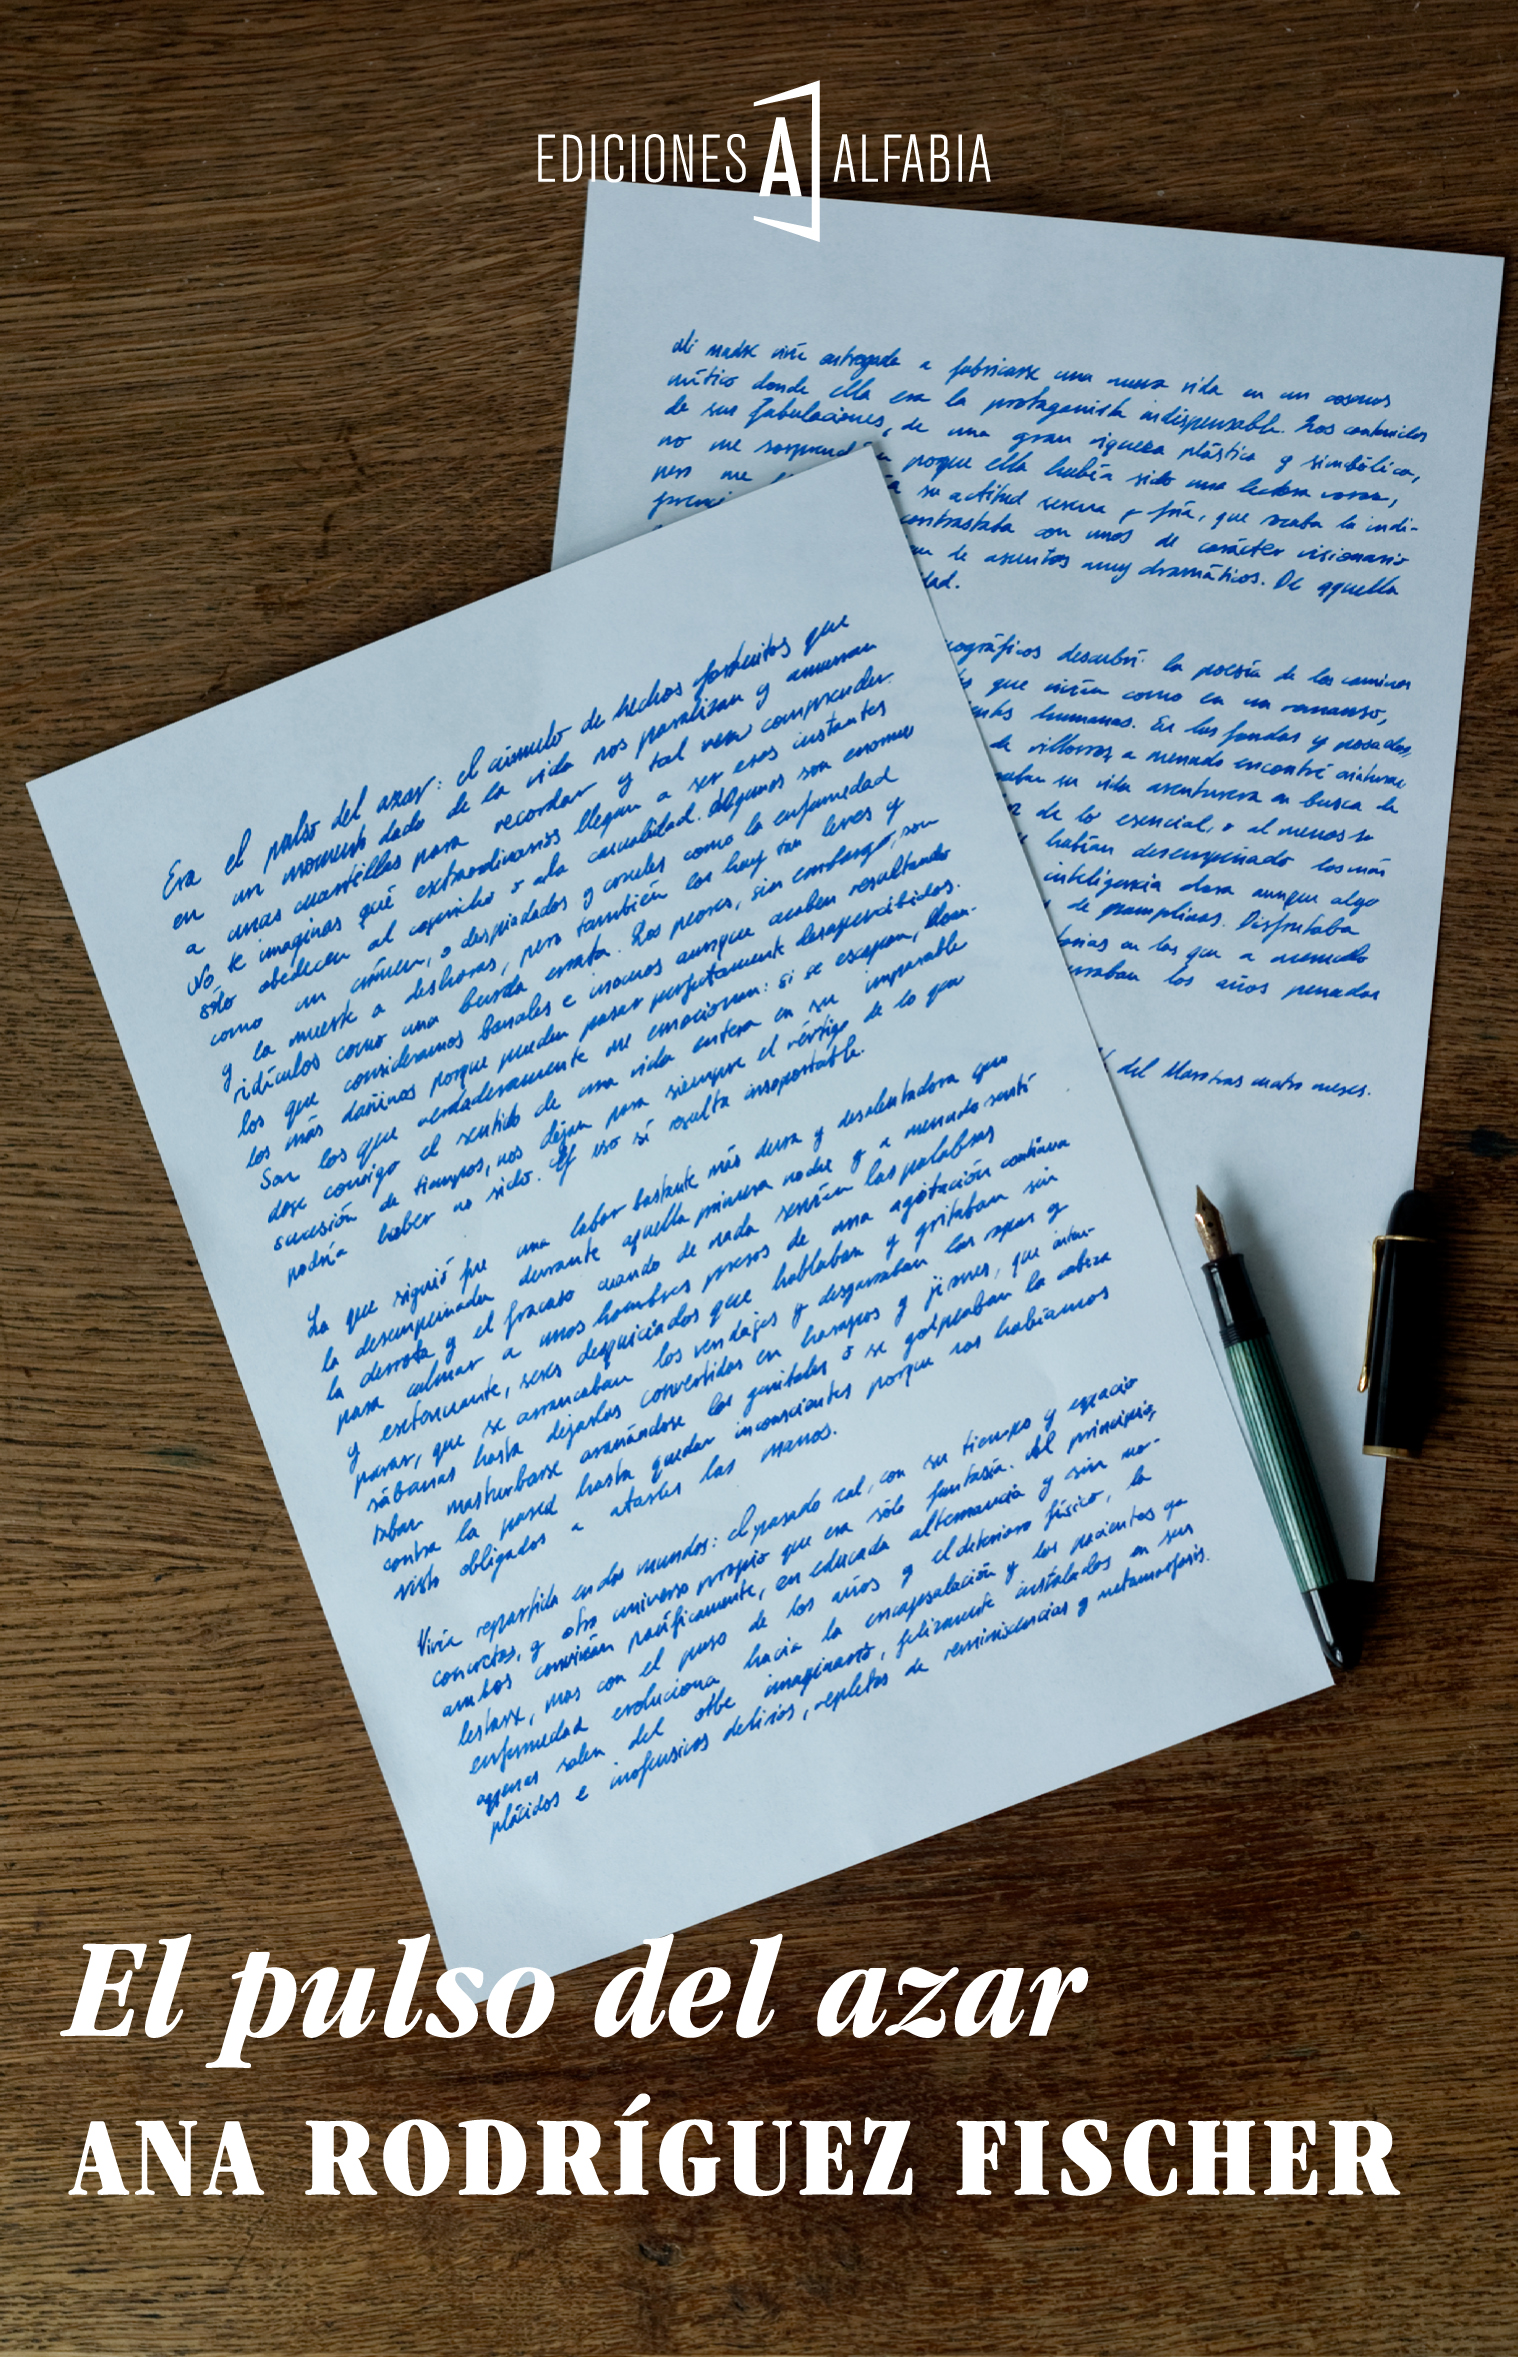 EDICIONES A ALFABIA
Mi madre vivía entregada a fabricarse una nueva vida en un cosmos
mítico donde ella era la protagonista indispensable. Los contenidos
de sus fabulaciones, de una gran riqueza plástica y simbólica,
no me porque ella había sido una lectora voraz,
pero me su actitud y fría, que
contrastaba con unos de carácter visionario
de asuntos muy dramáticos. De aquella
descubrí la poesía de los caminos
que vivían como en un remanso,
humanas. En las fondas y posadas,
de villorros, a menudo encontré
su vida aventurera en busca de
de lo esencial, o al menos
habían desempeñado los más
inteligencia clara aunque algo
de pamplinas. Disfrutaba
en las que a menudo
los años pasados
del cuatro meses.
Era el pulso del azar: el cúmulo de hechos fortuitos que
en un momento dado de la vida nos paralizan y amarran
a unas cuartillas para recordar y tal vez comprender.
No te imaginas qué extraordinarios llegan a ser esos instantes
sólo obedecen al capricho o a la casualidad. Algunos son enormes
como un crimen, o despiadados y crueles como la enfermedad
y la muerte a deshoras, pero también los hay tan leves y
ridículos como una burda errata. Los peores, sin embargo, son
los que consideramos banales e inocuos aunque acaben resultando
los más dañinos porque pueden pasar perfectamente desapercibidos.
Son los que verdaderamente me emocionan: si se escapan, lleván-
dose consigo el sentido de una vida entera en su imparable
sucesión de tiempos, nos dejan para siempre el vértigo de lo que
podría haber no sido. Y eso sí resulta insoportable.
Lo que siguió fue una labor bastante más dura y desalentadora que
la desempeñada durante aquella primera noche y a menudo sentí
la derrota y el fracaso cuando de nada servían las palabras
para calmar a unos hombres presos de una agitación continua
y extenuante, seres desquiciados que hablaban y gritaban sin
parar, que se arrancaban los vendajes y desgarraban las ropas y
sábanas hasta dejarlas convertidas en harapos y jirones, que inten-
taban masturbarse arañándose los genitales o se golpeaban la cabeza
contra la pared hasta quedar inconscientes porque nos habíamos
visto obligados a atarles las manos.
Vivía repartida en dos mundos: el pasado real, con su tiempo y espacio
concretos, y otro universo propio que era sólo fantasía. Al principio,
ambos convivían pacíficamente, en educada alternancia y sin mo-
lestarse, mas con el paso de los años y el deterioro físico, la
enfermedad evoluciona hacia la encapsulación y los pacientes ya
apenas salen del orbe imaginario, felizmente instalados en sus
plácidos e inofensivos delirios, repletos de reminiscencias y metamorfosis.
El pulso del azar
ANA RODRÍGUEZ FISCHER